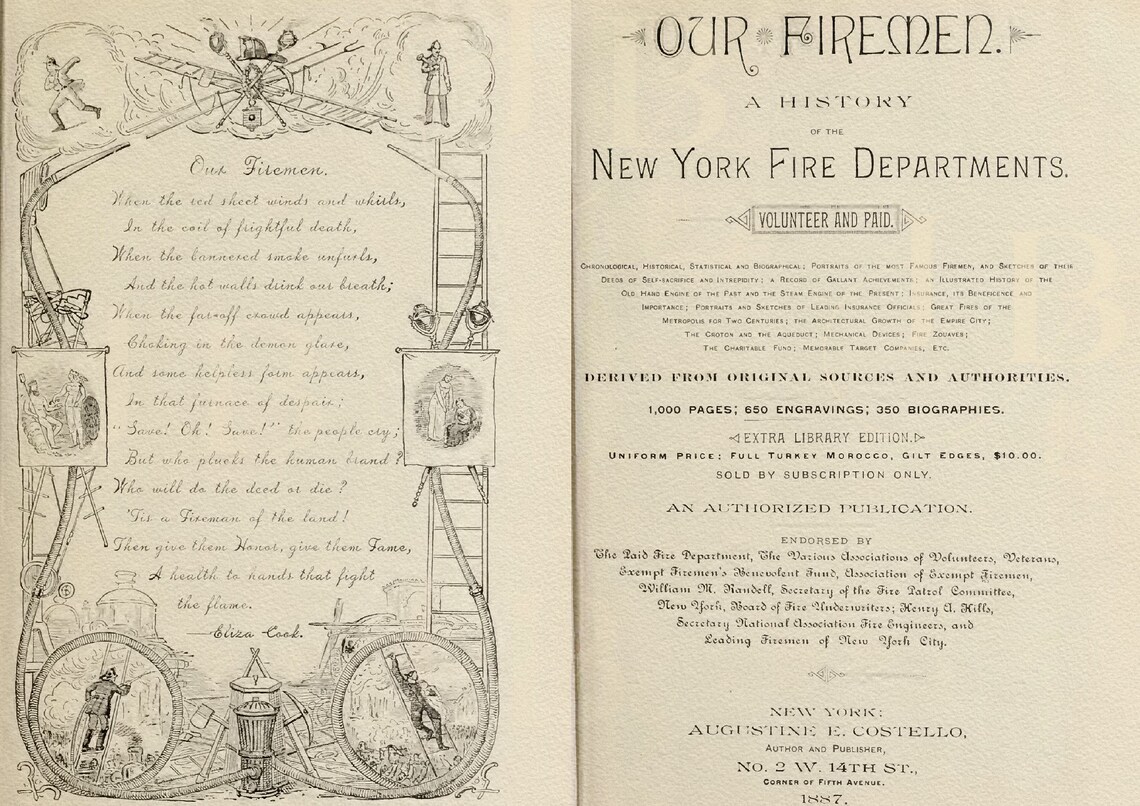 Our Firemen.
When the red sheet winds and whirls,
In the coil of frightful death,
When the bannered smoke unfurls,
And the hot walls drink our breath;
When the far-off crowd appears,
Choking in the demon glare,
And some helpless form appears,
In that furnace of despair;
"Save! Oh! Save!" the people cry;
But who plucks the human brand?
Who will do the deed or die?
'Tis a Fireman of the land!
Then give them Honor, give them Fame,
A health to hands that fight
the flame.
—Eliza Cook.
OUR FIREMEN.
A HISTORY
OF THE
NEW YORK FIRE DEPARTMENTS.
VOLUNTEER AND PAID.
CHRONOLOGICAL, HISTORICAL, STATISTICAL AND BIOGRAPHICAL; PORTRAITS OF THE MOST FAMOUS FIREMEN, AND SKETCHES OF THEIR
DEEDS OF SELF-SACRIFICE AND INTREPIDITY; A RECORD OF GALLANT ACHIEVEMENTS; AN ILLUSTRATED HISTORY OF THE
OLD HAND ENGINE OF THE PAST AND THE STEAM ENGINE OF THE PRESENT; INSURANCE, ITS BENEFICENCE AND
IMPORTANCE; PORTRAITS AND SKETCHES OF LEADING INSURANCE OFFICIALS; GREAT FIRES OF THE
METROPOLIS FOR TWO CENTURIES; THE ARCHITECTURAL GROWTH OF THE EMPIRE CITY;
THE CROTON AND THE AQUEDUCT; MECHANICAL DEVICES; FIRE ZOUAVES;
THE CHARITABLE FUND; MEMORABLE TARGET COMPANIES, ETC.
DERIVED FROM ORIGINAL SOURCES AND AUTHORITIES.
1,000 PAGES; 650 ENGRAVINGS; 350 BIOGRAPHIES.
EXTRA LIBRARY EDITION.
UNIFORM PRICE: FULL TURKEY MOROCCO, GILT EDGES, $10.00.
SOLD BY SUBSCRIPTION ONLY.
AN AUTHORIZED PUBLICATION.
ENDORSED BY
The Paid Fire Department, The Various Associations of Volunteers, Veterans,
Exempt Firemen's Benevolent Fund, Association of Exempt Firemen,
William M. Randell, Secretary of the Fire Patrol Committee,
New York, Board of Fire Underwriters; Henry A. Hills,
Secretary National Association Fire Engineers, and
Leading Firemen of New York City.
NEW YORK:
AUGUSTINE E. COSTELLO,
AUTHOR AND PUBLISHER,
NO. 2 W. 14TH ST.,
CORNER OF FIFTH AVENUE.
1887.